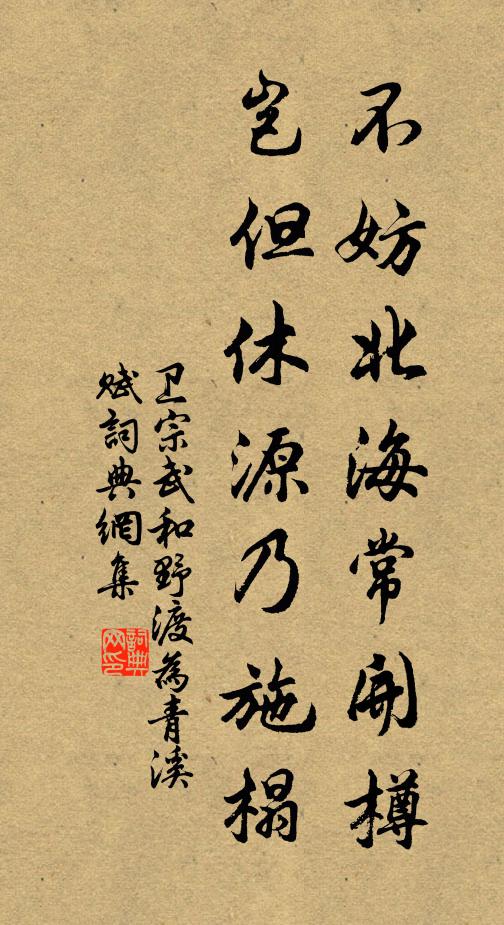 不妨北海常開樽
岂但休源乃施榻
卫宗武和野渡為青溪
賦詞典網集
詞典
网印